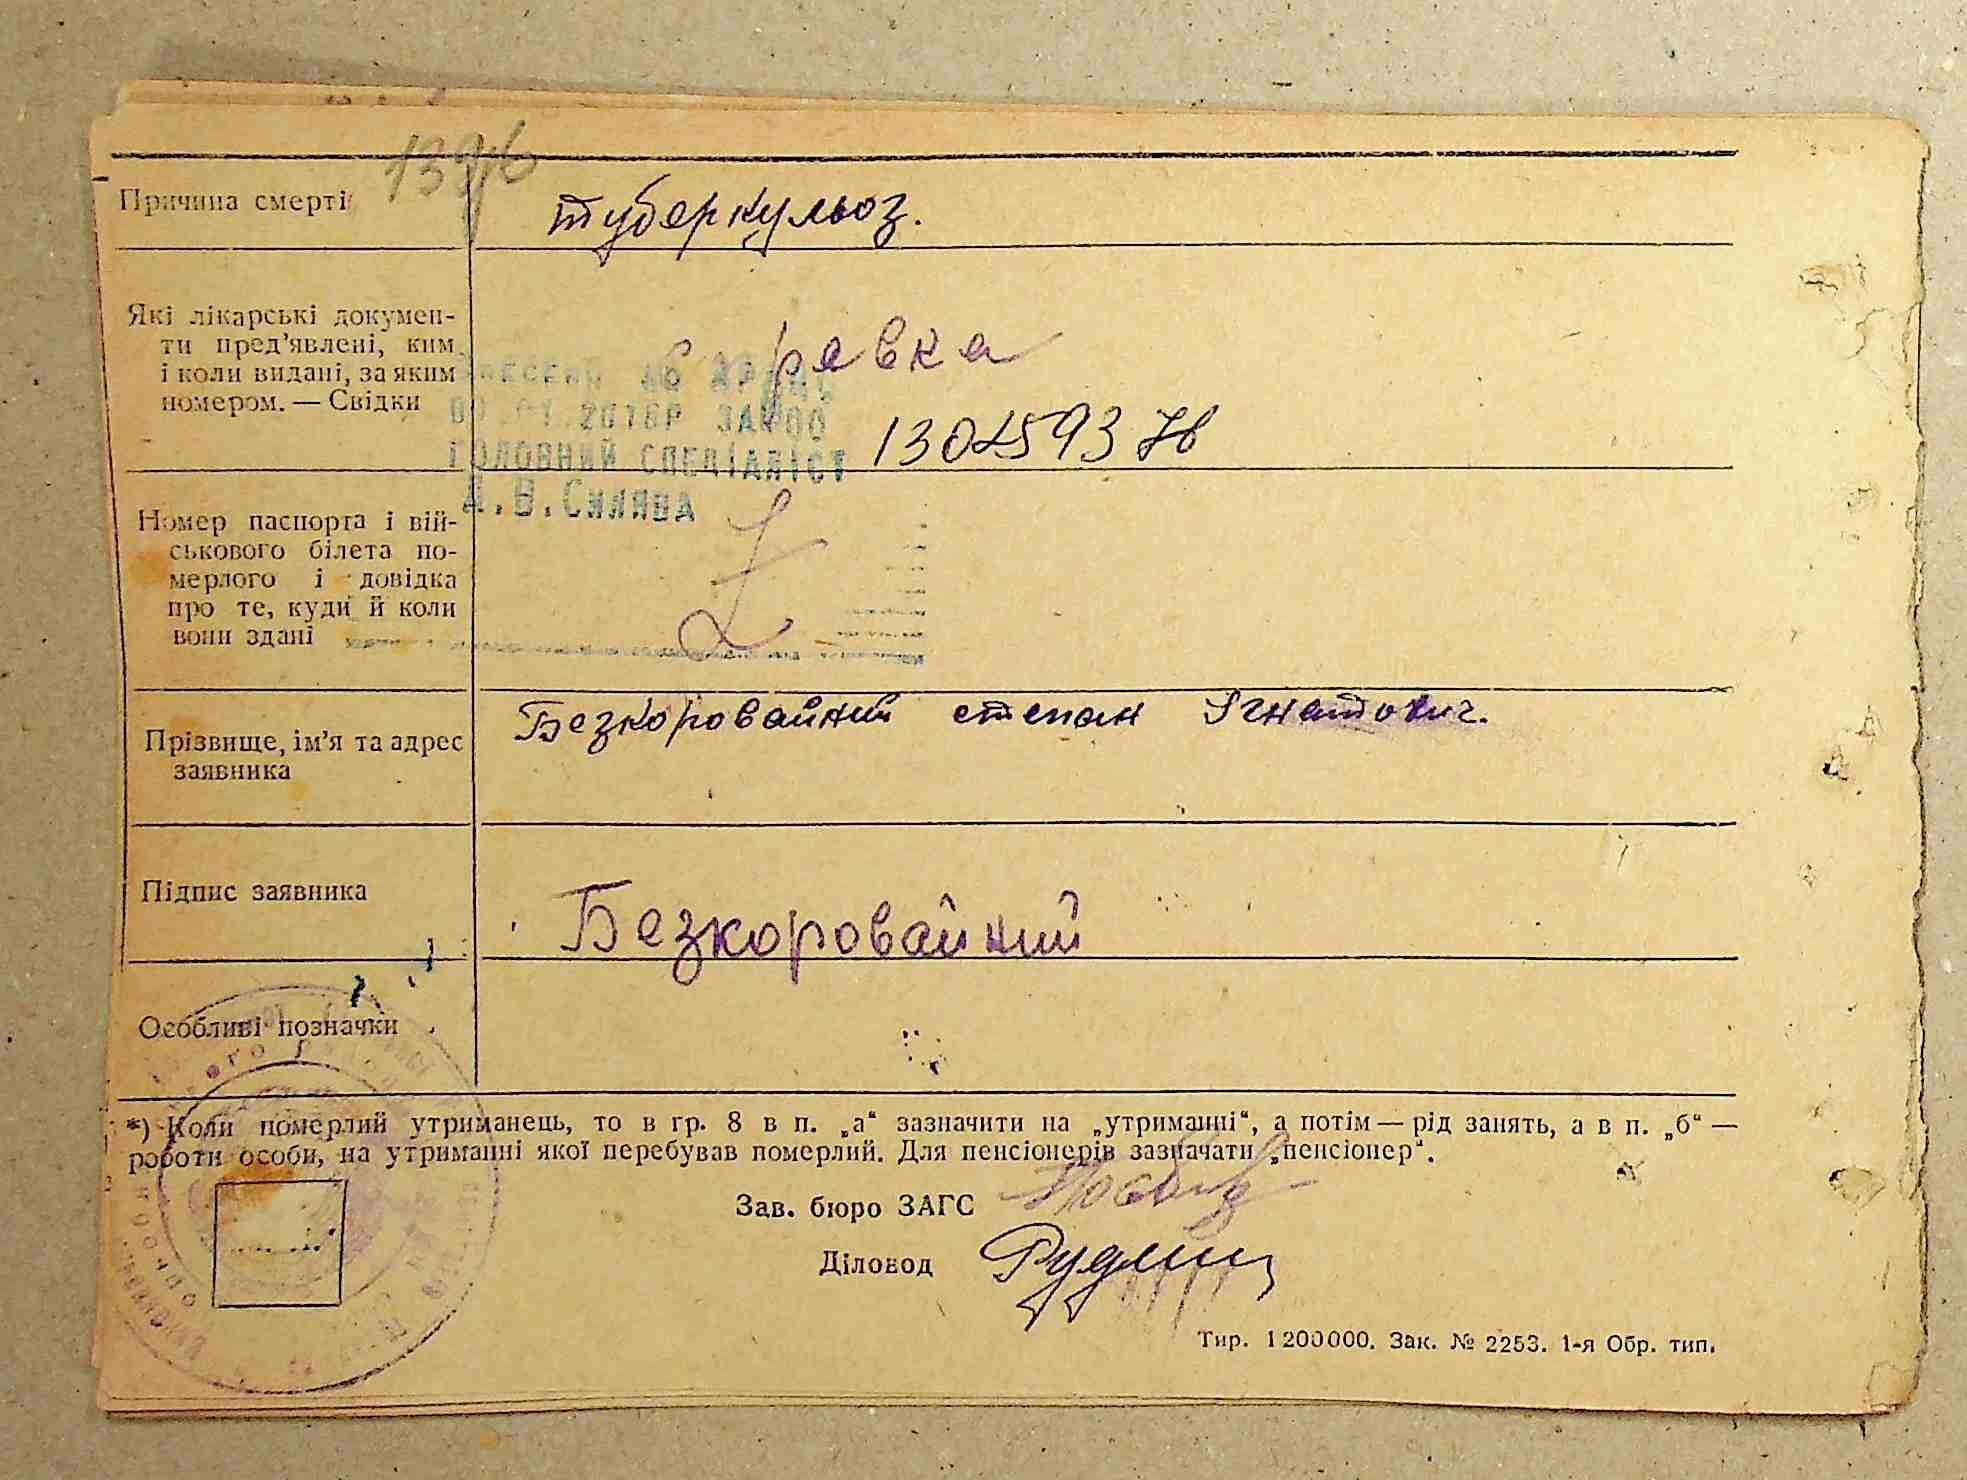 Причина смерті
туберкульоз.
Які лікарські докумен-
ти пред'явлені, ким
і коли видані, за яким
номером. — Свідки
ГОЛОВНИЙ СПЕЦІАЛІСТ
Номер паспорта і вій-
ськового білета по-
мерлого і довідка
про те, куди й коли
вони здані
Прізвище, ім'я та адрес
заявника
Безкоровайний степан Ігнатович.
Підпис заявника
Безкоровайний
Особливі позначки
*) Коли померлий утриманець, то в гр. 8 в п. „а“ зазначити на „утриманні“, а потім — рід занять, а в п. „б“ —
роботи особи, на утриманні якої перебував померлий. Для пенсіонерів зазначати „пенсіонер“.
Зав. бюро ЗАГС
Діловод
Тир. 1200000. Зак. № 2253. 1-я Обр. тип.